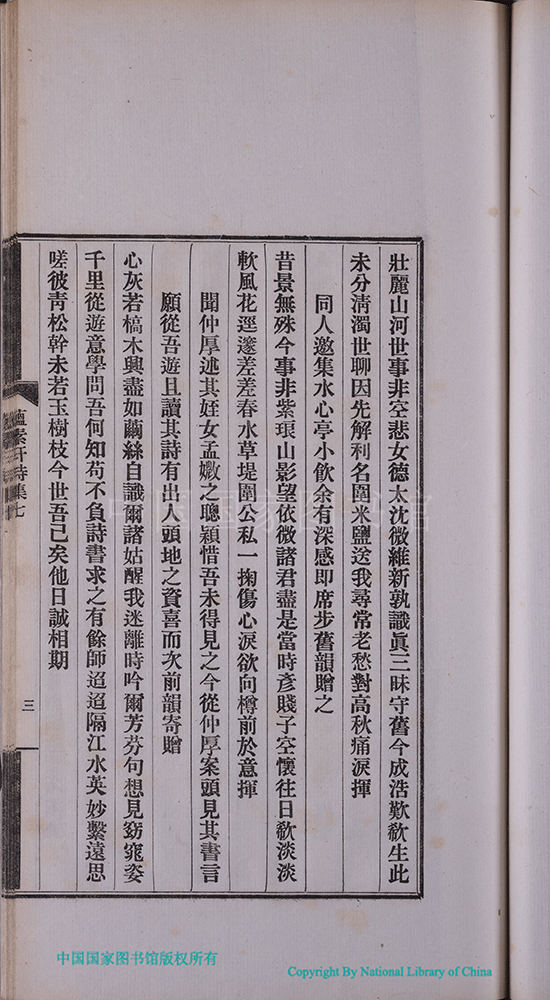 壯麗山河世事非空悲女德太沈微維新孰識眞三昧守舊今成浩歎欷生此
未分淸濁世聊因先解利名圍米鹽送我尋常老愁對高秋痛淚揮
同人邀集水心亭小飲余有深感卽席步舊韻贈之
昔景無殊今事非紫琅山影望依微諸君盡是當時彥賤子空懷往日欷淡淡
軟風花逕邃差差春水草堤圍公私一掬傷心淚欲向樽前於意揮
聞仲厚述其姪女孟嫩之聰穎惜吾未得見之今從仲厚案頭見其書言
願從吾遊且讀其詩有出人頭地之資喜而次前韻寄贈
心灰若槁木興盡如繭絲自識爾諸姑醒我迷離時吟爾芬芳句想見窈窕姿
千里從遊意學問吾何知苟不負詩書求之有餘師迢迢隔江水英妙繫遠思
嗟彼靑松幹未若玉樹枝今世吾已矣他日誠相期
蘊素軒詩集七
三
中国国家图书馆版权所有
Copyright By National Library of China